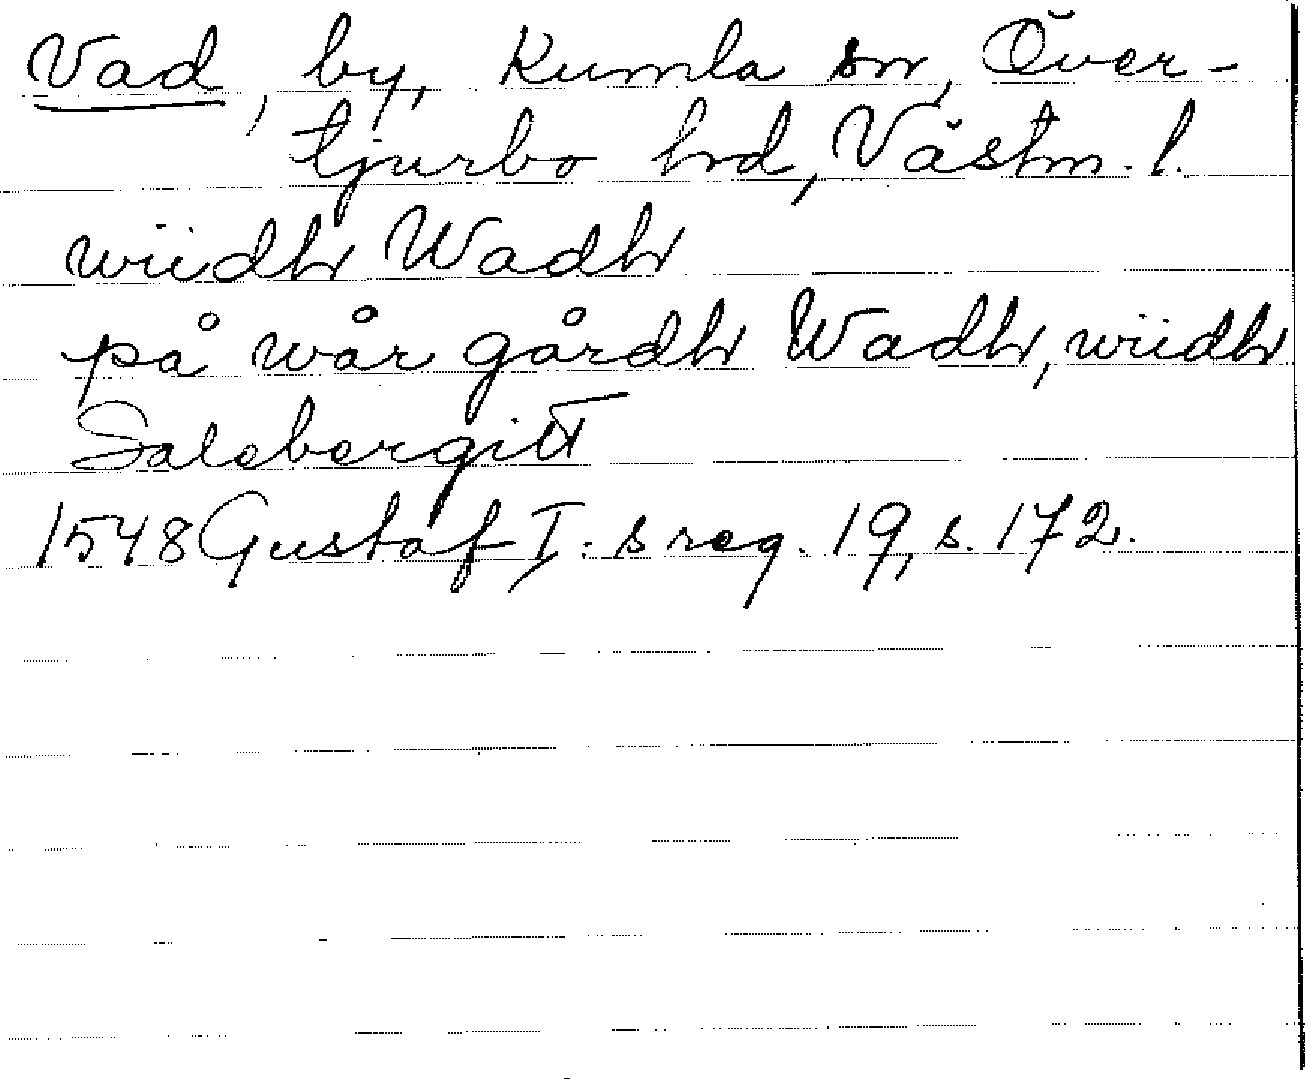 Vad, by, Kumla sn, Över-
tjurbo hrd, Västm. l.
wiidh Wadh
på wår gårdh Wadh, wiidh
Salebergitt
1548 Gustaf I:s reg. 19, s. 172.